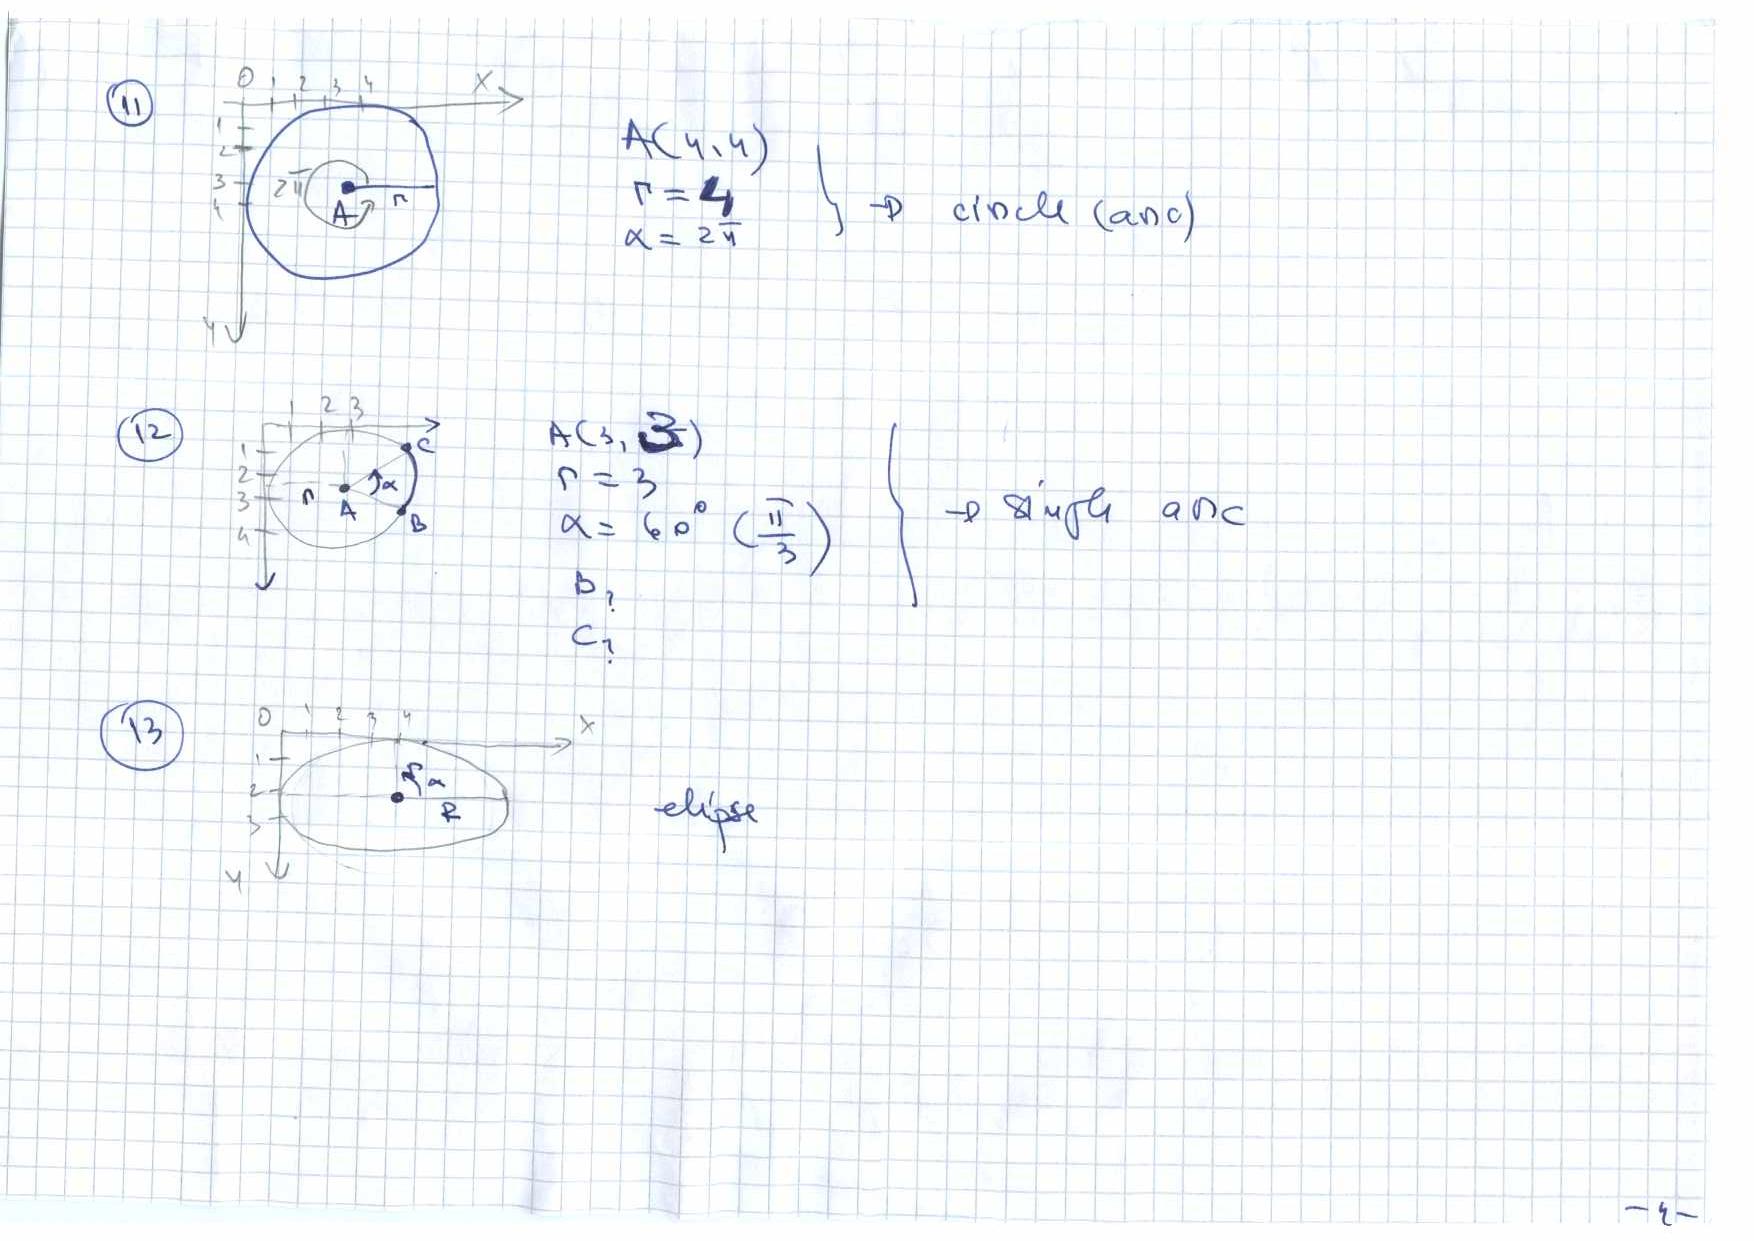 11
0 1 2 3 4 X
1
2
3
4
Y
2π
A r
A(4,4)
r = 4
α = 2π
→ circle (arc)
12
1 2 3
1
2
3
4
r A α C B
A(3, 3)
r = 3
α = 60° (π/3)
B?
C?
→ single arc
13
0 1 2 3 4 X
1
2
3
Y
r α
R
elipse